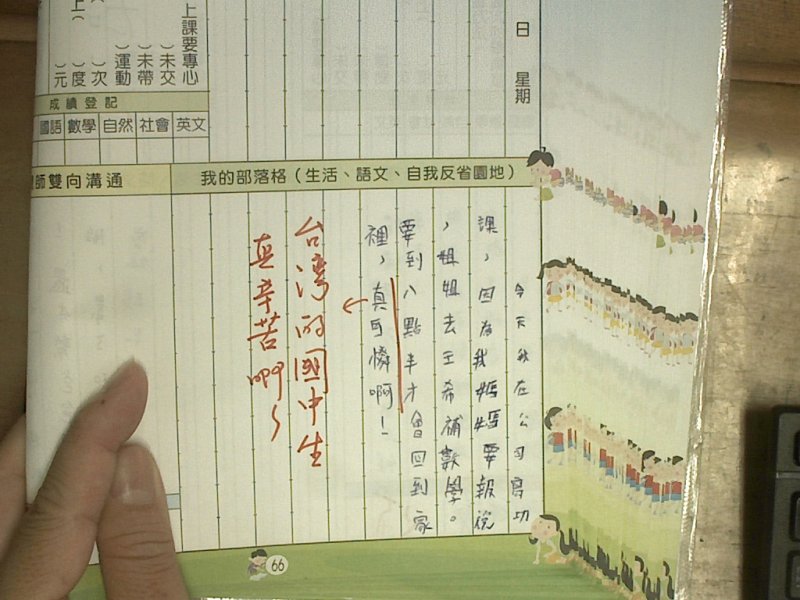 日 星期
上課要專心
）未交
）未帶
）運動
）次
）度
）元
成績登記
國語 數學 自然 社會 英文
師雙向溝通
我的部落格（生活、語文、自我反省園地）
今天我在公司寫功
課，因為我媽媽要報稅
，姐姐去王希補數學。
要到八點半才會回到家
裡，真可憐啊！
台灣的國中生
真辛苦啊～
66